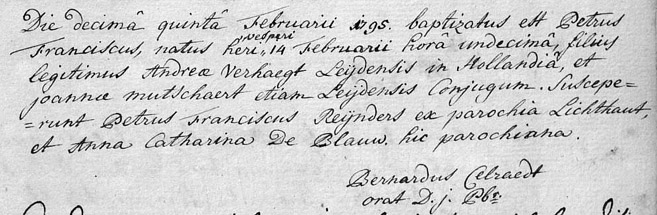 Die decimâ quintâ Februarii 1795. baptizatus est Petrus
Franciscus, natus heri vesperi 14 Februarii horâ undecimâ, filius
legitimus Andreæ Verhaegt Leijdensis in Hollandiâ, et
joannæ mutschaert etiam Leijdensis Conjugum. Suscepe-
-runt Petrus Franciscus Reijnders ex parochia Lichthaut,
et Anna Catharina De Blauw. hic parochiana.
Bernardus Celraedt
orat. D. j. Pbr.